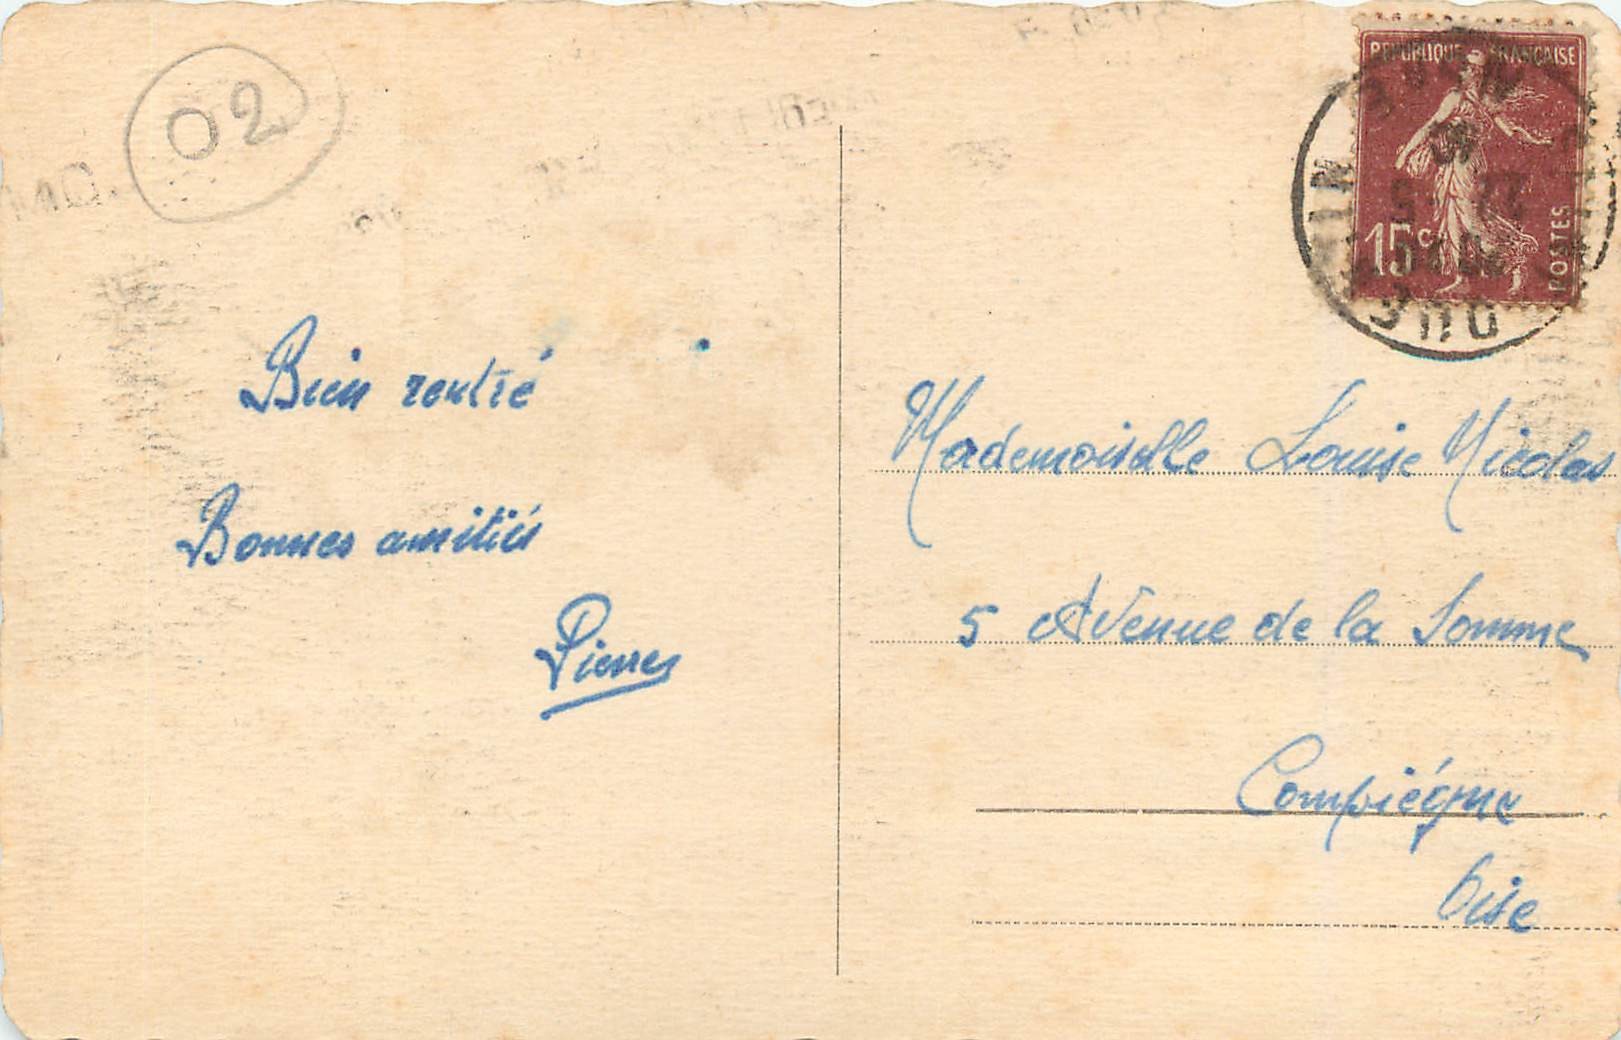 02
Bien rentré
Bonnes amitiés
Pierre
REPUBLIQUE FRANÇAISE
15c
POSTES
Mademoiselle Louise Nicolas
5 Avenue de la Somme
Compiégne
Oise